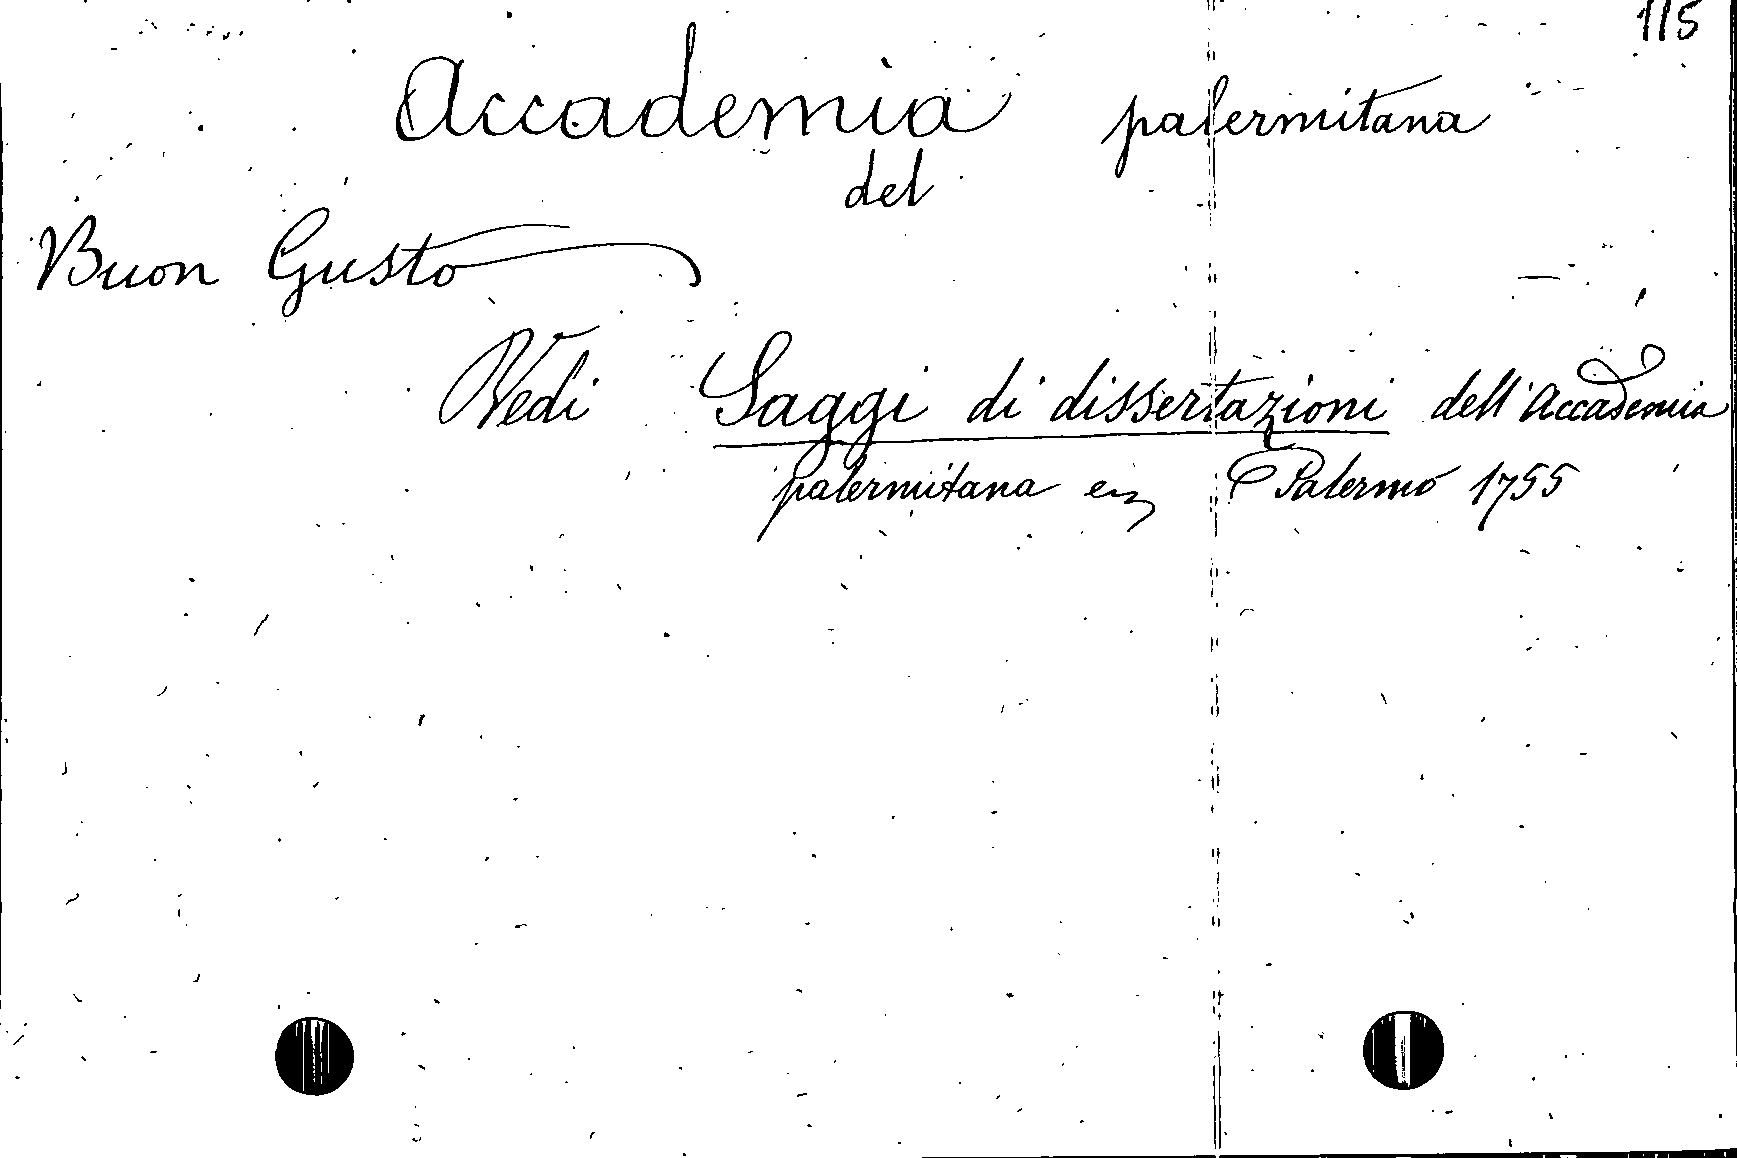 115
Accademia palermitana
del
Buon Gusto
Vedi Saggi di dissertazioni dell'Accademia
palermitana Palermo 1755